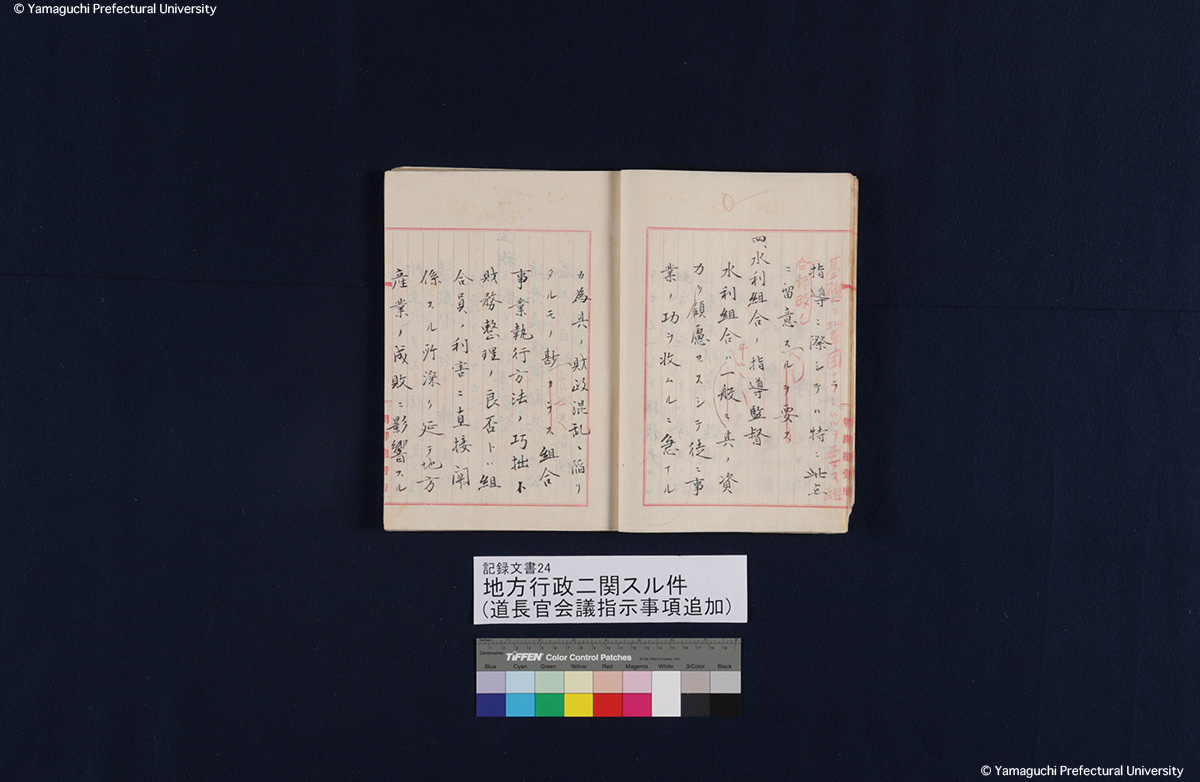 © Yamaguchi Prefectural University
指導ニ際シテハ特ニ此点
ニ留意スルヲ要ス
四、水利組合ノ指導監督
水利組合ハ一般ニ其ノ資
力ヲ顧慮セスシテ徒ニ事
業ノ功ヲ收ムルニ急ナル
カ為其ノ財政混乱ニ陥リ
タルモノ尠カラス組合
事業執行方法ノ巧拙ト
財務整理ノ良否トハ組
合員ノ利害ニ直接関
係スル所深ク延テ地方
産業ノ成敗ニ影響スル
記録文書24
地方行政ニ関スル件
(道長官会議指示事項追加)
TIFFEN Color Control Patches
Blue Cyan Green Yellow Red Magenta White 3/Color Black
© Yamaguchi Prefectural University